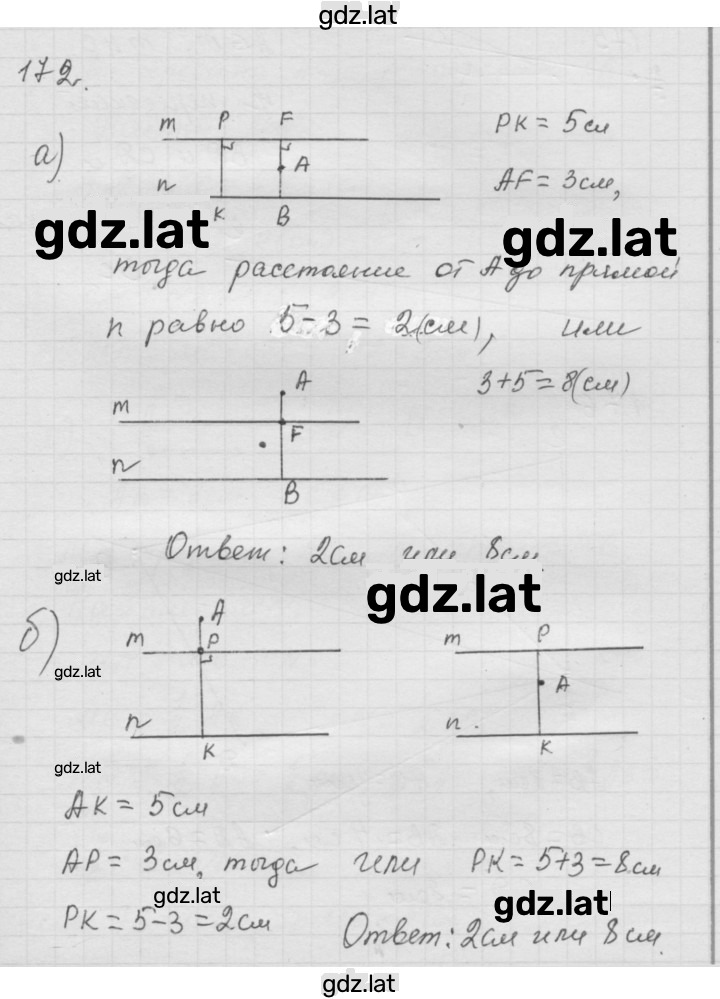 gdz.lat
172.
а)
m P F
A
n
K B
PK = 5см
AF = 3см,
gdz.lat
gdz.lat
тогда расстояние от A до прямой
n равно 5-3 = 2(см), или
3+5=8(см)
A
m
F
n
B
Ответ: 2см или 8см
gdz.lat
gdz.lat
б)
A
m P
n
K
gdz.lat
m P
A
n.
K
gdz.lat
AK = 5см
AP = 3см, тогда или PK = 5+3=8см
gdz.lat
gdz.lat
PK = 5-3=2см
Ответ: 2см или 8см.
gdz.lat